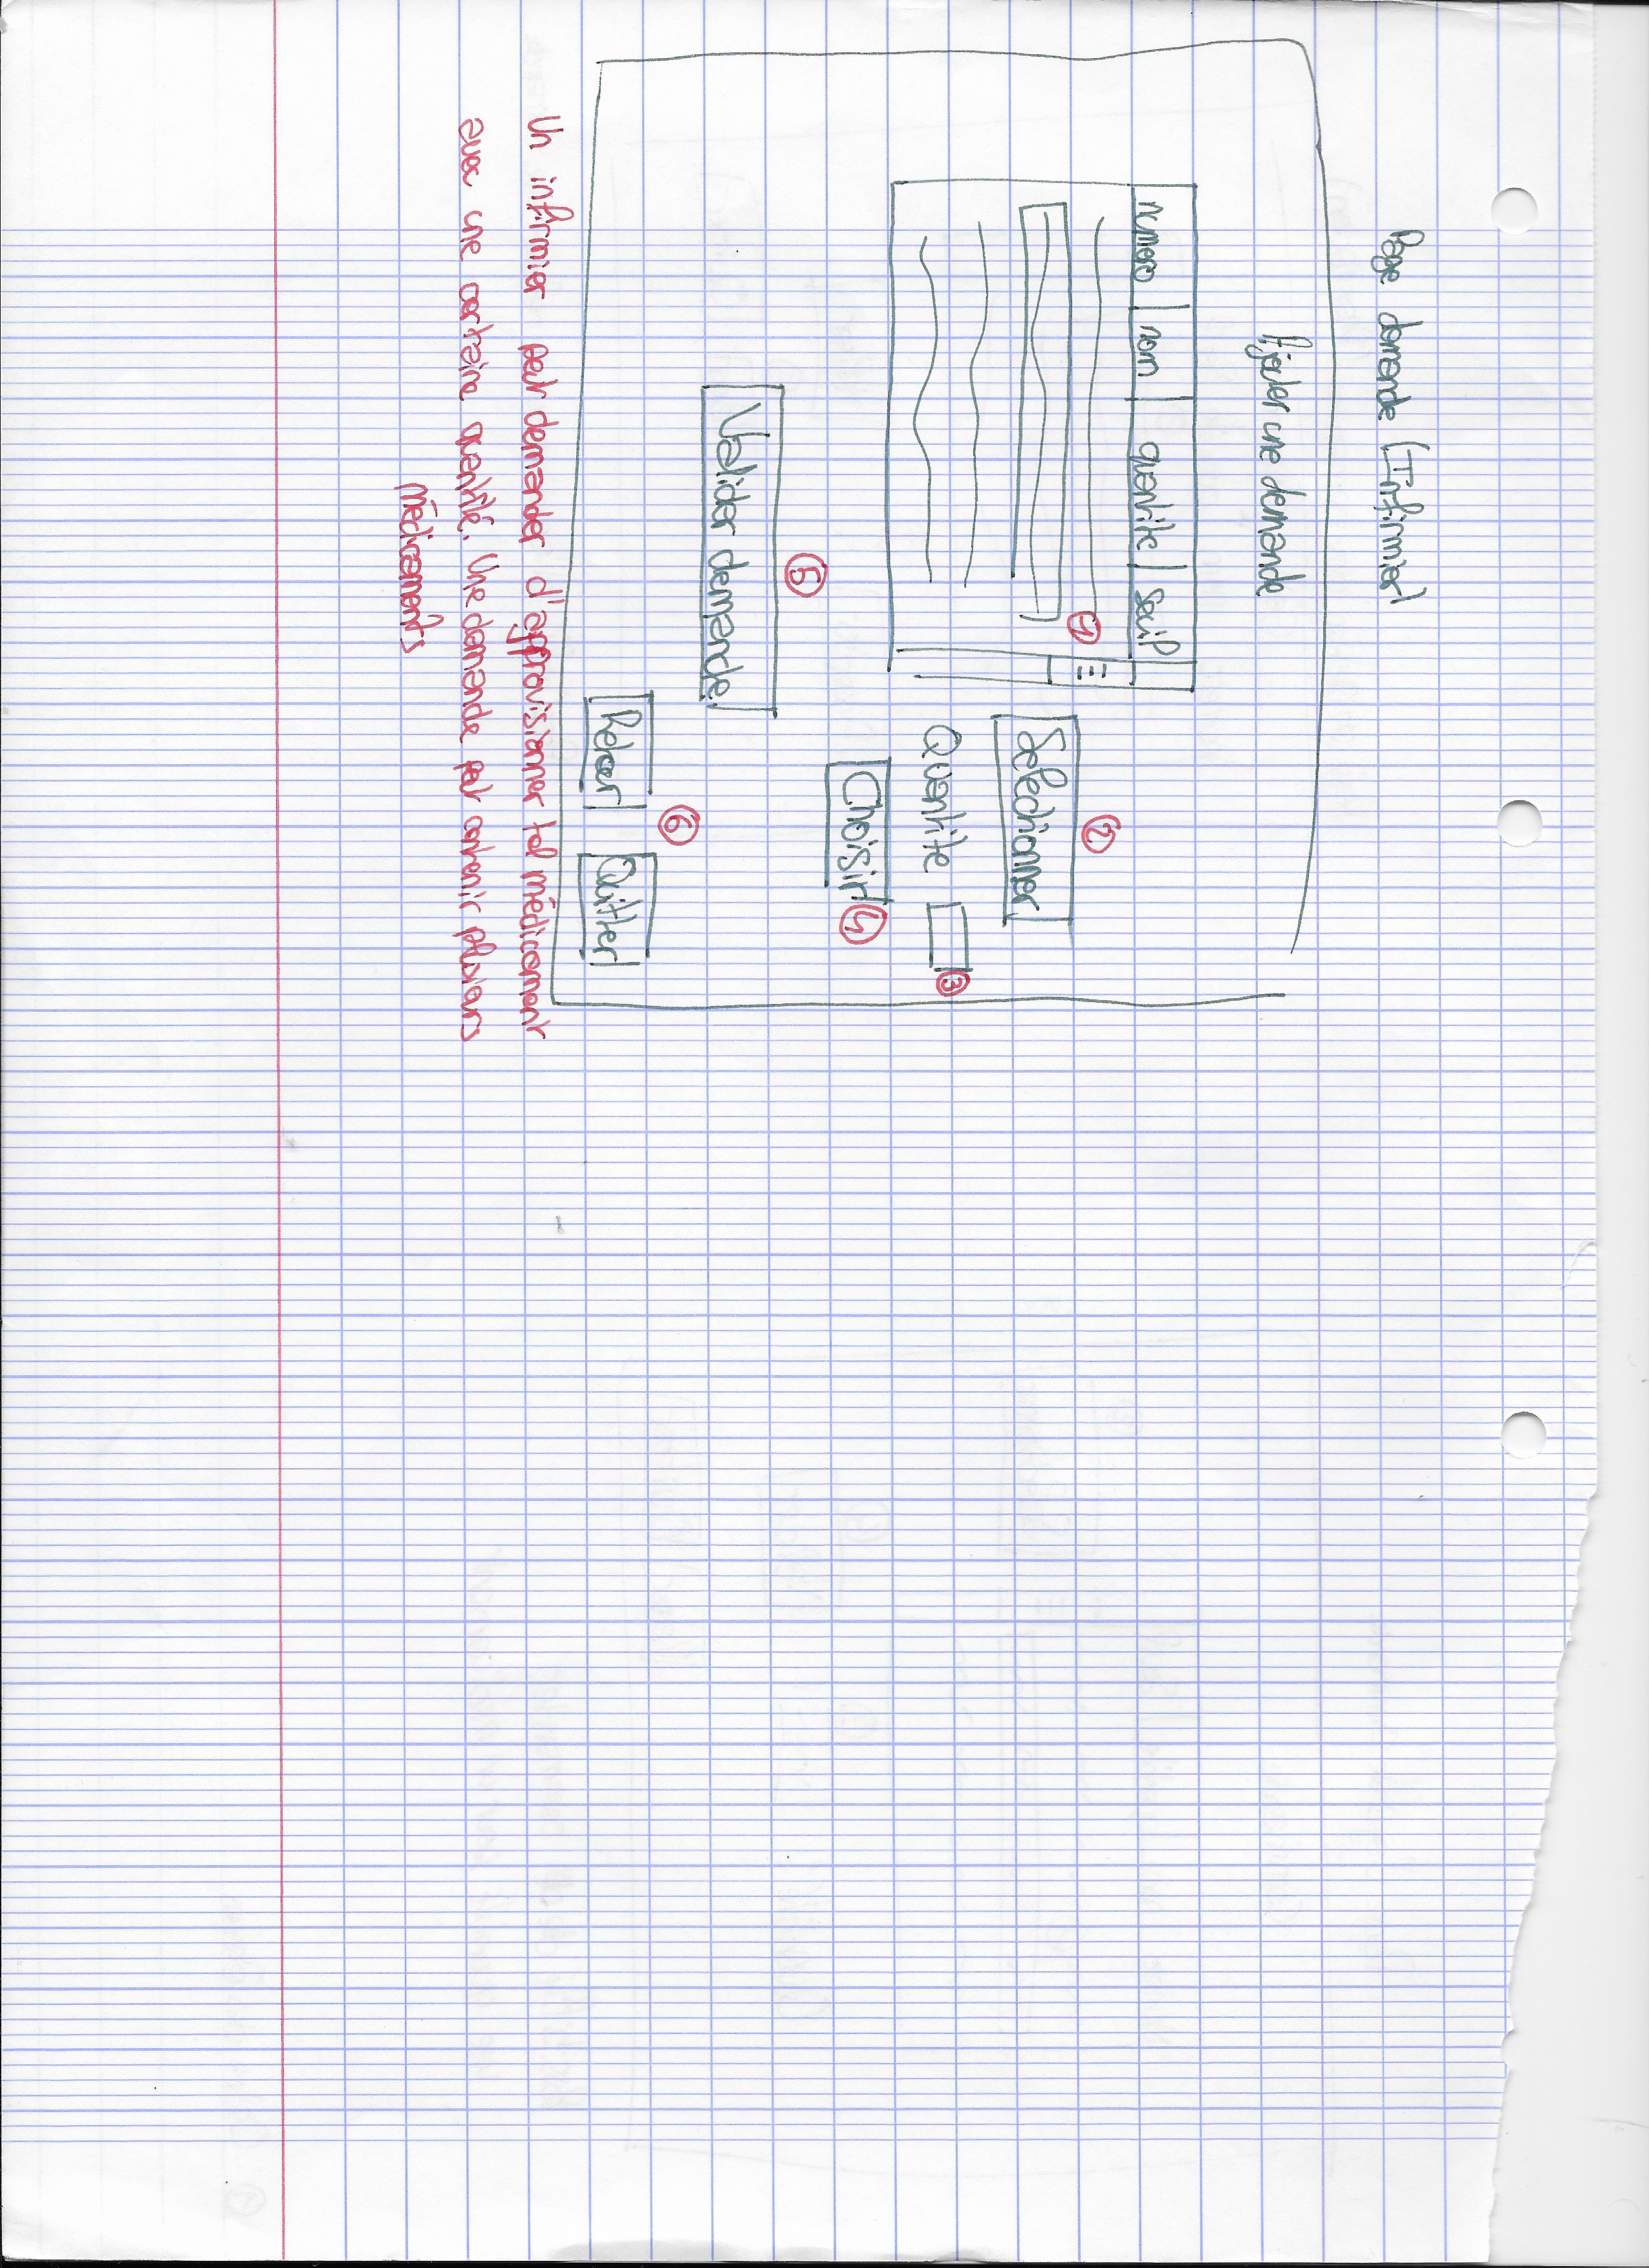 Page demande (Infirmier)
Ajouter une demande
numero nom quantite Seuil
1
2
Selectionner
Quantite 3
Choisir 4
5
Valider demande
6
Retour Quitter
Un infirmier peut demander d'approvisionner tel médicament
avec une certaine quantité. Une demande peut contenir plusieurs
médicaments